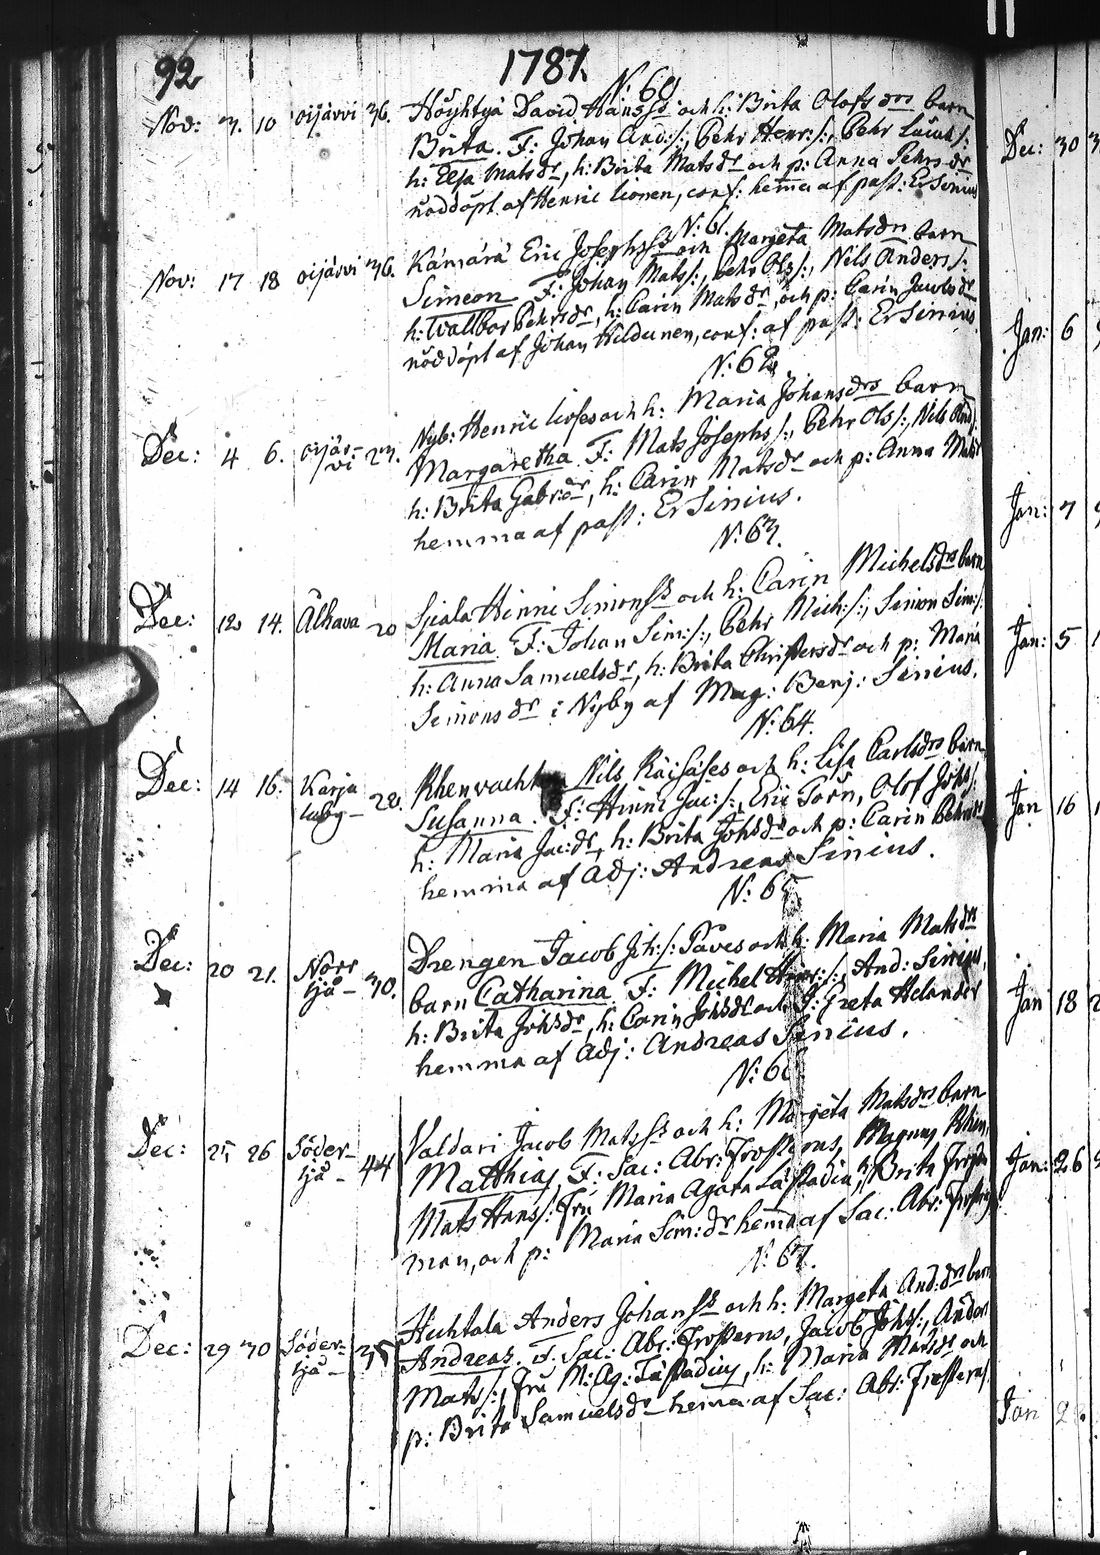 92 1787.
N: 60
Nov: 3. 10 oijärvi 36. Höyhtyä David Hansss och h: Brita Olofs drs barn
Brita. F: Johan And:s:, Pehr Henr:s:, Pehr
h: Elsa Matsdr, h: Brita Matsdr och p: Anna Pehrsdr
nöddöpt af Henric conf: hemma af past: Er Sinius
N: 61.
Nov: 17 18 oijärvi 36. Kämärä Eric Josephsss och Margeta Matsdrs barn
Simeon F: Johan Mats:, Pehr Ols:, Nils Anders:
h: Wallbor Pehrsdr, h: Carin Matsdr, och p: Carin Jacobsdr
nöddöpt af Johan Hildunen, conf: af past: Er Sinius
N: 62.
Dec: 4 6. oijär-
vi 23. Nyb: Henric och h: Maria Johansdrs barn
Margaretha F: Mats Josephs:, Pehr Ols:, Nils And:
h: Brita Gabr:dr, h: Carin Matsdr och p: Anna Matsdr
hemma af past: Er Sinius.
N: 63.
Dec: 12 14. Älhava 20 Hinric Simonss och h: Carin Michelsdrs barn
Maria. F: Johan Sim:s:, Pehr Mich:s:, Simon Sim:s:
h: Anna Samuelsdr, h: Brita Christersdr och p: Maria
Simonsdr i Nyby af Mag: Benj: Sinius.
N: 64.
Dec: 14 16. Karja
luby- 28. Rhenvacht Nils och h: Lisa Carlsdrs barn
Susanna. F: Hinric Jac:s:, Eric Torn, Olof Johs:
h: Maria Jac:dr, h: Brita Johsdr och p: Carin Pehrsdr
hemma af Adj: Andreas Sinius.
N: 65
Dec: 20 21. Norr
ijå- 30. Drengen Jacob Joh:s: Paves och h: Maria Matsdrs
barn Catharina. F: Michel And: Sinius,
h: Brita Johsdr, h: Carin Johsdr och J: Greta Helander
hemma af Adj: Andreas Sinius.
N: 66
Dec: 25 26 Söder-
ijå- 44 Valdari Jacob Matsss och h: Margeta Matsdrs barn
Matthias. F: Sac: Abr: Frosterus, Magnus
Mats Hans: Fru Maria Agata Læstadia, h: Brita
man, och p: Maria Sim:dr hemma af Sac: Abr: Frosterus
N: 67.
Dec: 29 30 Söder-
ijå- 35 Huhtala Anders Johansss och h: Margeta And:drs barn
Andreas. F: Sac: Abr: Frosterus, Jacob Johs:, Anders
Mats:, Fru M: Ag: Læstadius, h: Maria Matsdr och
p: Brita Samuelsdr hemma af Sac: Abr: Frosterus.
Dec: 30
Jan: 6
Jan: 7
Jan: 5
Jan 16
Jan 18
Jan: 26
Jan